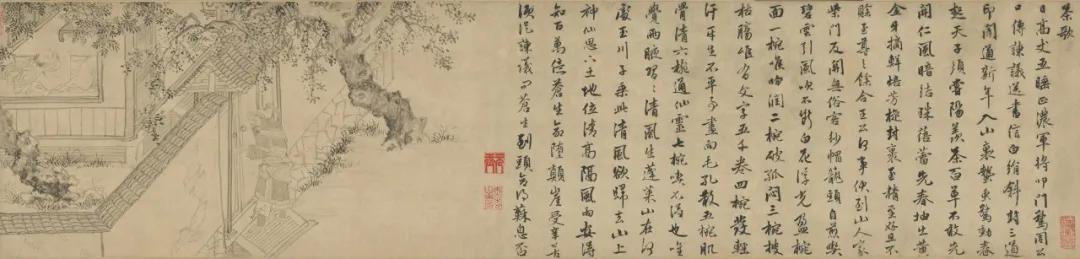 茶歌
日高丈五睡正濃軍將叩門驚周公
口傳諫議送書信白絹斜封三道
印聞道新年入山裏蟄蟲驚動春
起天子須嘗陽羨茶百草不敢先
開仁風暗結珠蓓蕾先春抽出黃
金牙摘鮮焙芳旋封裹至精至好且不
奢至尊之餘合王公何事便到山人家
柴門反關無俗客紗帽籠頭自煎喫
碧雲引風吹不斷白花浮光盈椀
面一椀喉吻潤二椀破孤悶三椀搜
枯腸唯有文字五千卷四椀發輕
汗平生不平事盡向毛孔散五椀肌
骨清六椀通仙靈七椀喫不得也唯
覺兩腋習習清風生蓬萊山在何
處玉川子乘此清風欲歸去山上
神仙思下土地位清高隔風雨安得
知百萬億蒼生命墮顛崖受辛苦
便從諫議問蒼生到頭合得蘇息否